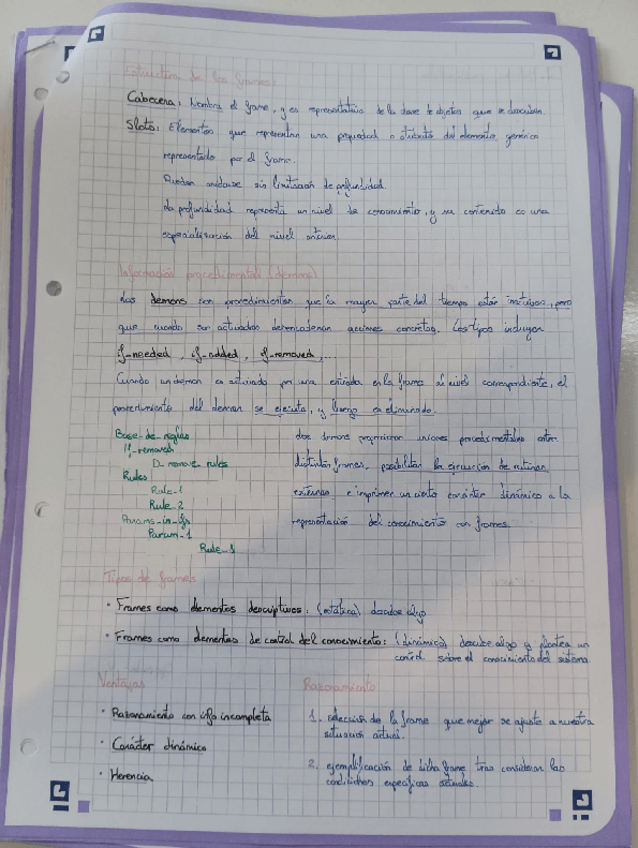 Estructura de los frames:
Cabecera: Nombra el frame, y es representativo de la clase de objetos que se describen.
Slots: Elementos que representan una propiedad o atributo del elemento genérico
representado por el frame.
Pueden anidarse sin limitación de profundidad.
La profundidad representa un nivel de conocimiento, y su contenido es una
especialización del nivel anterior.
Información procedimental (demons)
Los demons son procedimientos que la mayor parte del tiempo están inactivos, pero
que cuando son activados desencadenan acciones concretas. Los tipos incluyen
if-needed, if-added, if-removed,...
Cuando un demon es activado por una entrada en la frame al nivel correspondiente, el
procedimiento del demon se ejecuta, y luego es eliminado.
Base-de-reglas
If-removed
D-remove-rules
Rules
Rule-1
Rule-2
Params-in-
Param-1
Rule-1
Los demons proporcionan uniones procedimentales entre
distintas frames, posibilitan la ejecución de rutinas
externas e imprimen un cierto carácter dinámico a la
representación del conocimiento con frames.
Tipos de frames
· Frames como elementos descriptivos: (estática) describe algo
· Frames como elementos de control del conocimiento: (dinámica) describe algo y plantea un
control sobre el conocimiento del sistema
Ventajas
· Razonamiento con info incompleta
· Carácter dinámico
· Herencia
Razonamiento
1. selección de la frame que mejor se ajuste a nuestra
situación actual.
2. ejemplificación de dicha frame tras considerar las
condiciones específicas actuales.